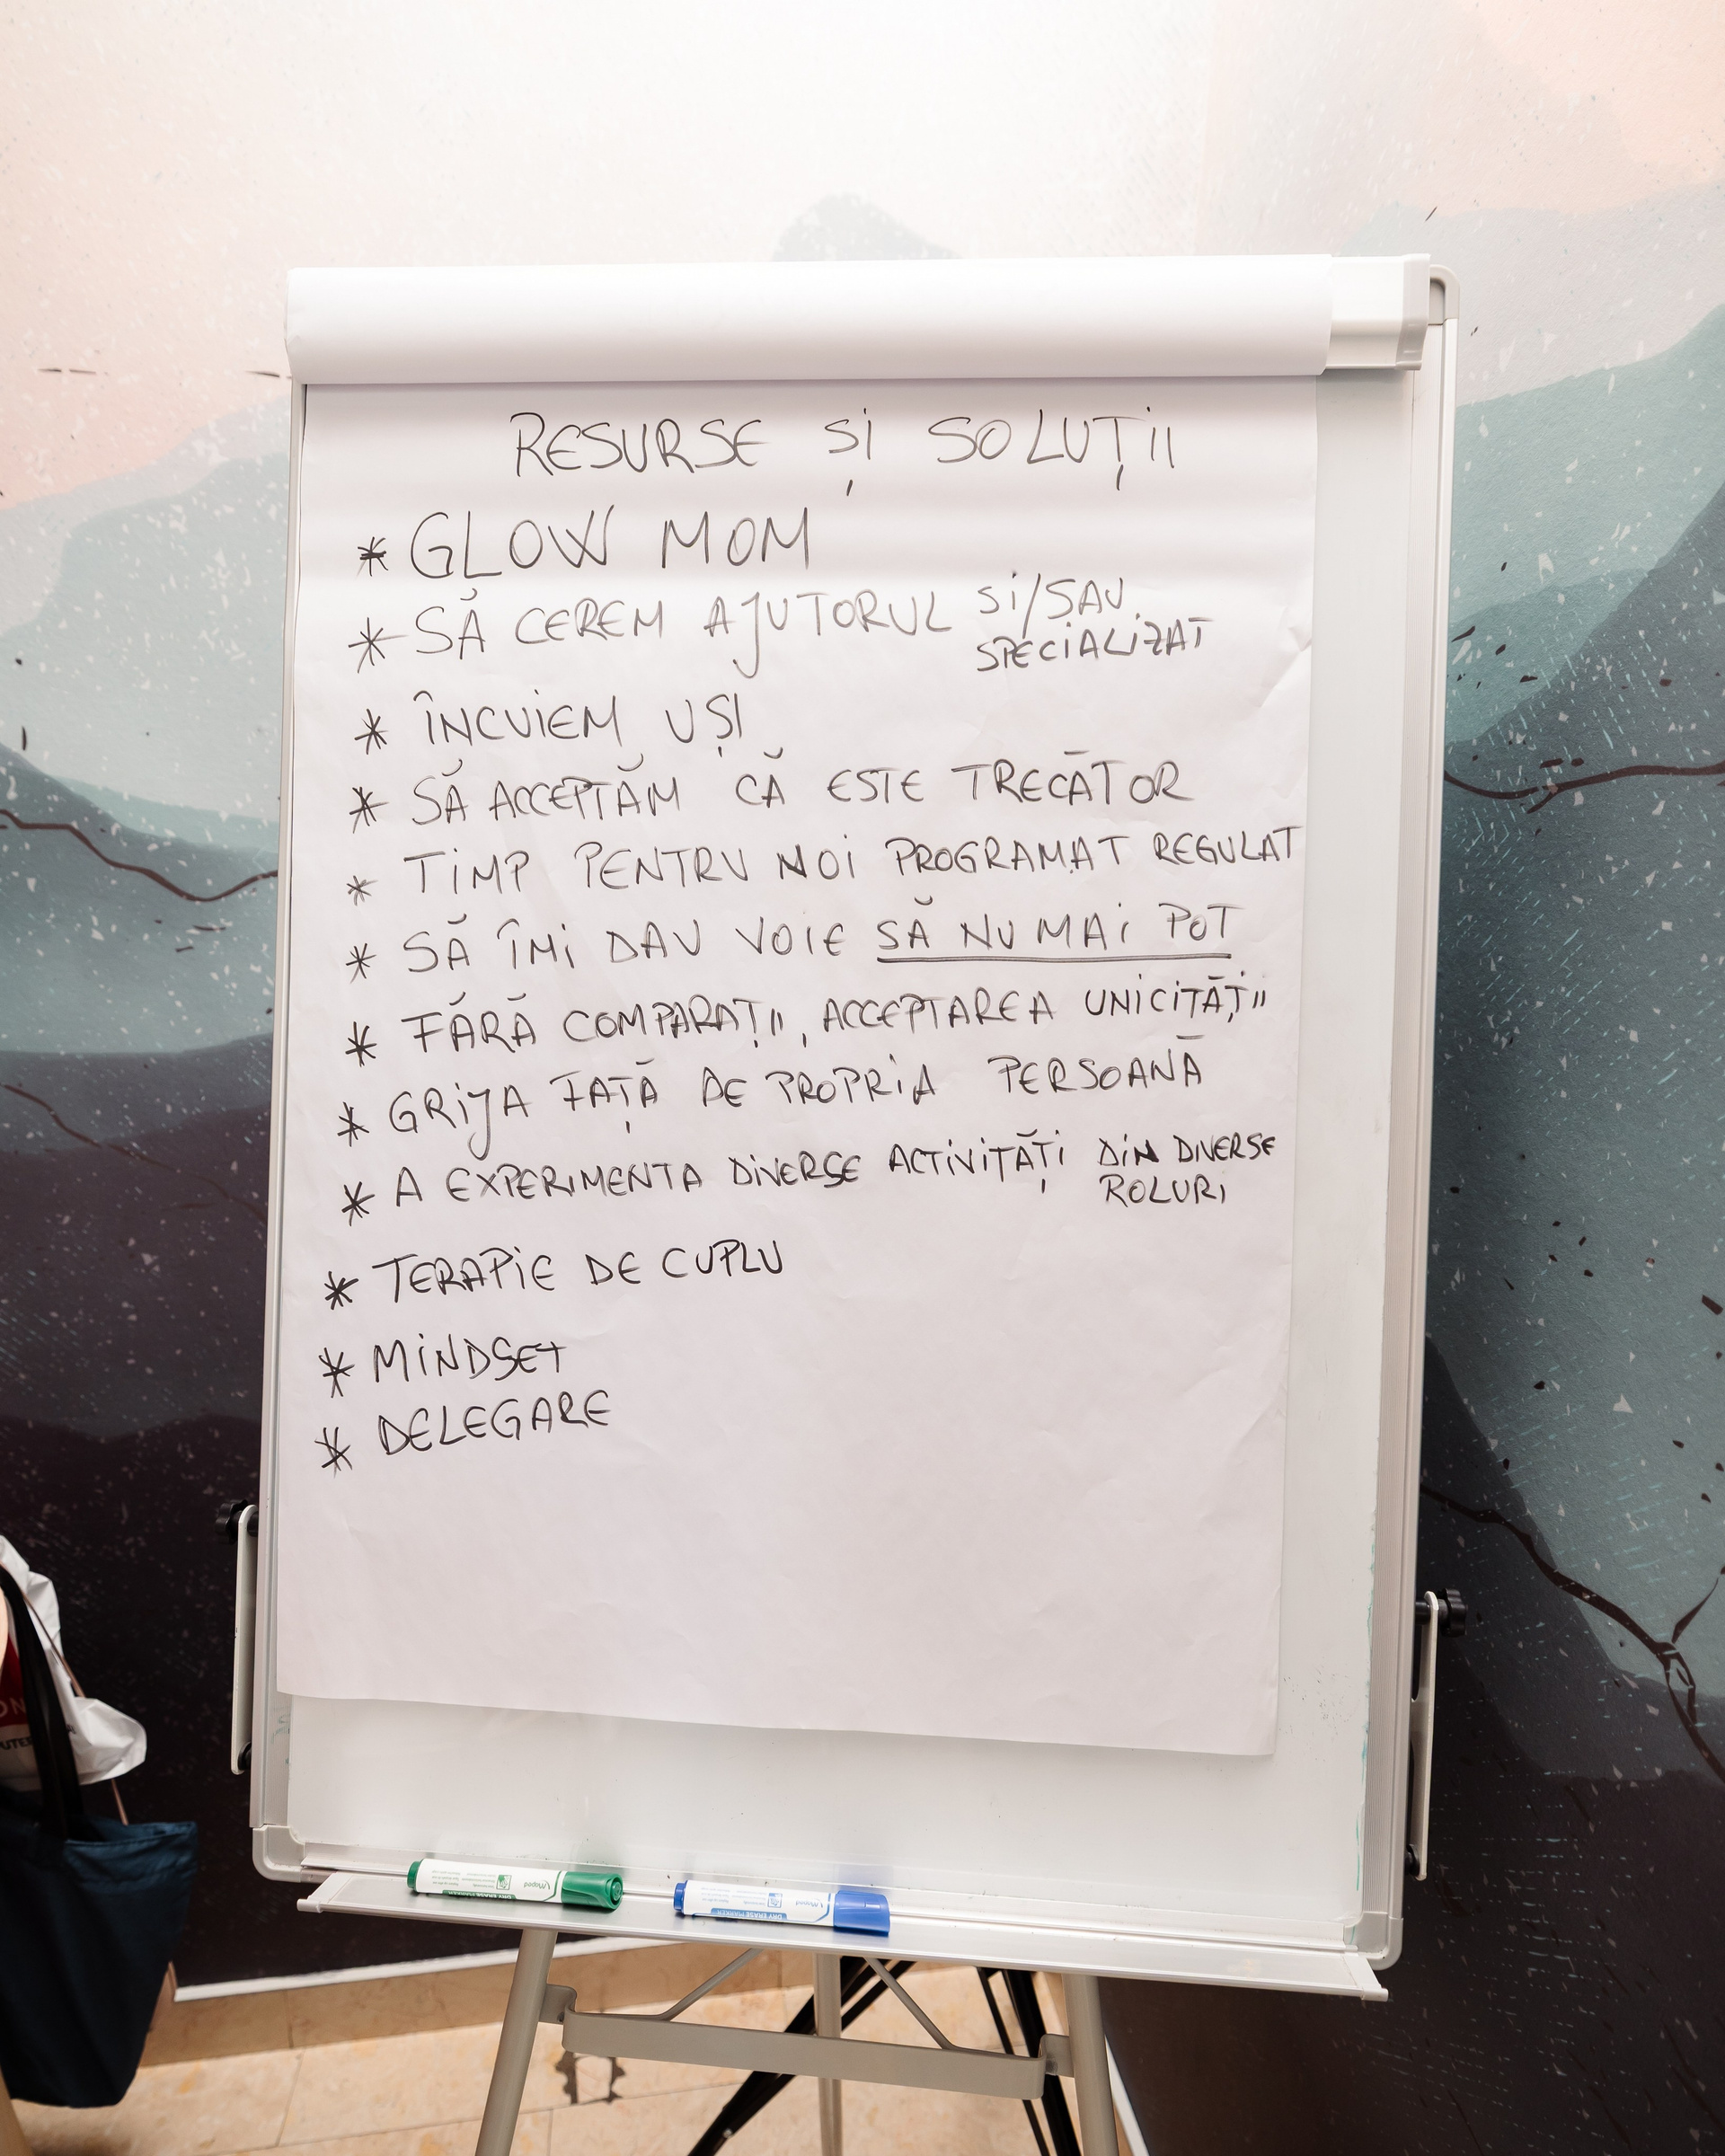 RESURSE ȘI SOLUȚII
* GLOW MOM
* SĂ CEREM AJUTORUL SI/SAU
SPECIALIZAT
* ÎNCUIEM UȘI
* SĂ ACCEPTĂM CĂ ESTE TRECĂTOR
* TIMP PENTRU NOI PROGRAMAT REGULAT
* SĂ ÎMI DAU VOIE SĂ NU MAI POT
* FĂRĂ COMPARAȚII, ACCEPTAREA UNICITĂȚII
* GRIJA FAȚĂ DE PROPRIA PERSOANĂ
* A EXPERIMENTA DIVERSE ACTIVITĂȚI DIN DIVERSE
ROLURI
* TERAPIE DE CUPLU
* MINDSET
* DELEGARE
DRY ERASE MARKER
DRY ERASE MARKER